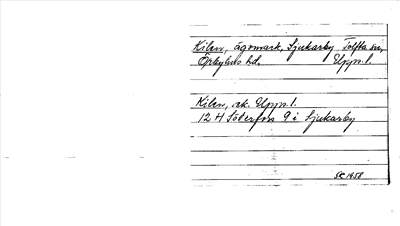 Kilen, ägomark, Sjukarby Tolfta sn,
Örbyhus hd. Upps. l.
Kilen, ek. Upps. l.
12 H Söderfors 9 i Sjukarby
SK 1958